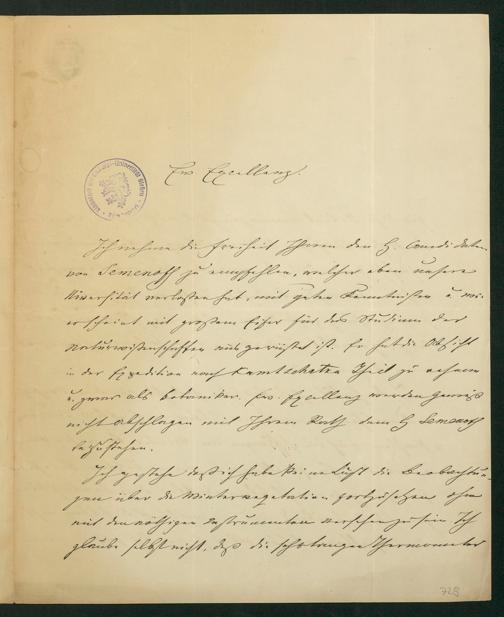 Ew Excellenz.
Ich nehme die Freiheit Ihnen den H. Candidaten
von Semenoff zu empfehlen, welcher eben unsere
Universität verlassen hat, mit guten Kenntnissen u mir
erscheint mit großem Eifer für das Studium der
Naturwissenschaften ausgerüstet ist. Er hat die Absicht
in der Expedition nach Kamtschatka Theil zu nehmen
u. zwar als Botaniker. Ew. Excellenz werden gewiß
nicht abschlagen mit Ihrem Rath dem H Semenoff
beizustehen.
Ich gestehe daß ich habe keine Lust die Beobachtun-
gen über die Wintervegetation fortzusetzen ohne
mit den nöthigen Instrumenten versehen zu sein Ich
glaube selbst nicht, daß die Thermometer
728